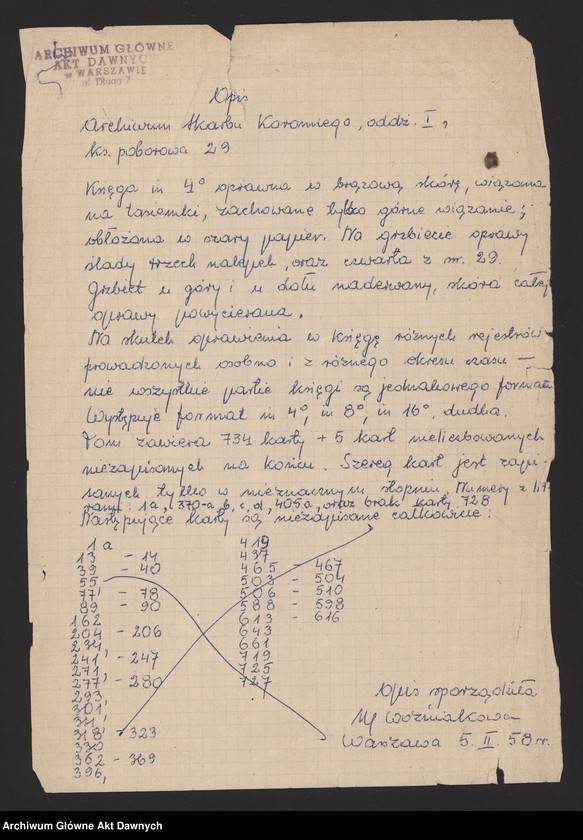 ARCHIWUM GŁÓWNE
AKT DAWNYCH
w WARSZAWIE
ul. Długa 7
Opis
Archiwum Skarbu Koronnego, oddz. I,
ks. poborowa 29
Księga in 4° oprawna w brązową skórę, wiązana
na tasiemki, zachowane tylko górne wiązanie;
obłożona w szary papier. Na grzbiecie oprawy
ślady trzech nalepek, oraz czwarta z nr. 29.
Grzbiet u góry i u dołu naderwany, skóra całej
oprawy powycierana.
Na skutek oprawienia w księgę różnych rejestrów
prowadzonych osobno i z różnego okresu czasu —
nie wszystkie partie księgi są jednakowego formatu
Występuje format in 4°, in 8°, in 16°, dudka.
Tom zawiera 734 karty + 5 kart nieliczbowanych
niezapisanych na końcu. Szereg kart jest zapi-
sanych tylko w nieznacznym stopniu. Numery z
1a, 370-a, b, c, d, 405a, oraz brak karty 728
Następujące karty są niezapisane całkowicie:
1a
13 - 14
39 - 40
55
77 - 78
89 - 90
162
204 - 206
234,
241 - 247
271,
277 - 280
293,
301,
311,
318 - 323
330
362 - 369
396,
419
437
465 - 467
503 - 504
506 - 510
588 - 598
613 - 616
643
661
719
725
727
Opis sporządziła
M Woźniakowa
Warszawa 5. II. 58 r.
Archiwum Główne Akt Dawnych